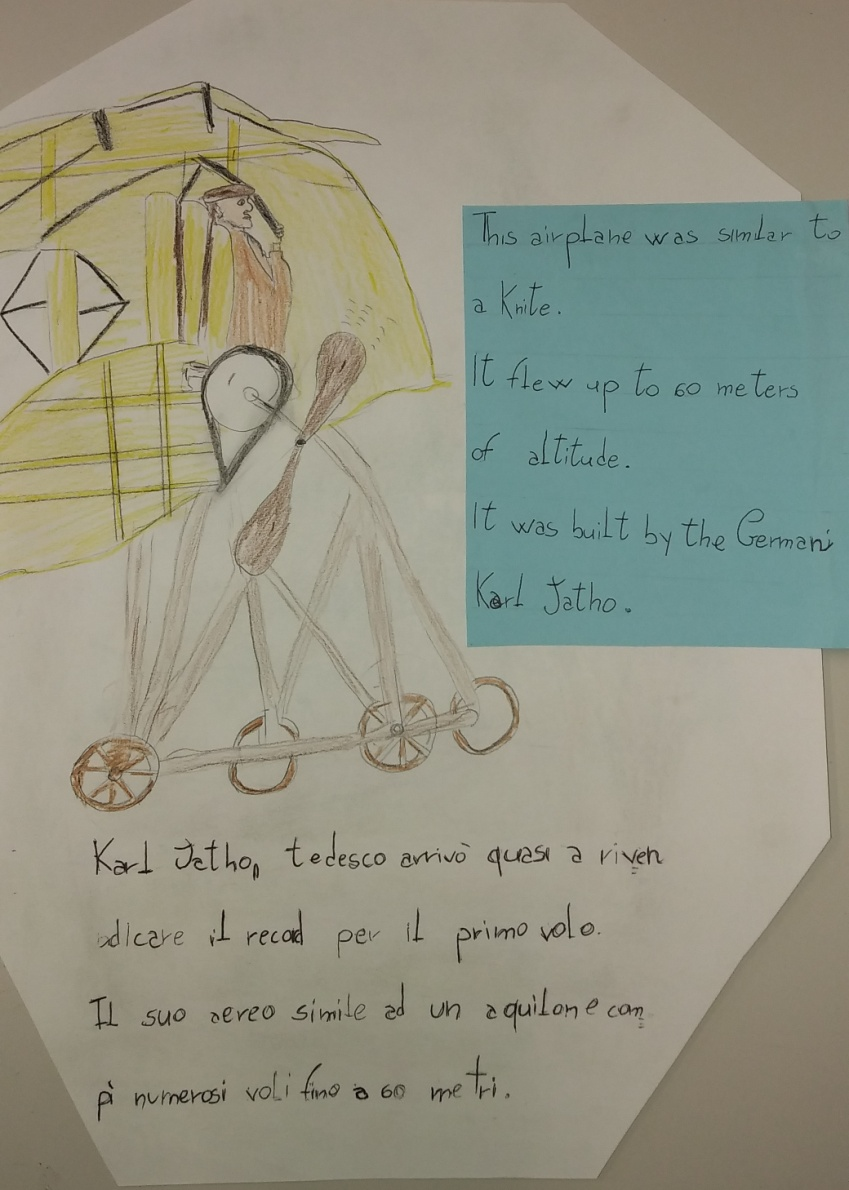 This airplane was similar to
a Knite.
It flew up to 60 meters
of altitude.
It was built by the German
Karl Jatho.
Karl Jatho, tedesco arrivò quasi a riven
dicare il record per il primo volo.
Il suo aereo simile ad un aquilone com
pì numerosi voli fino a 60 metri.